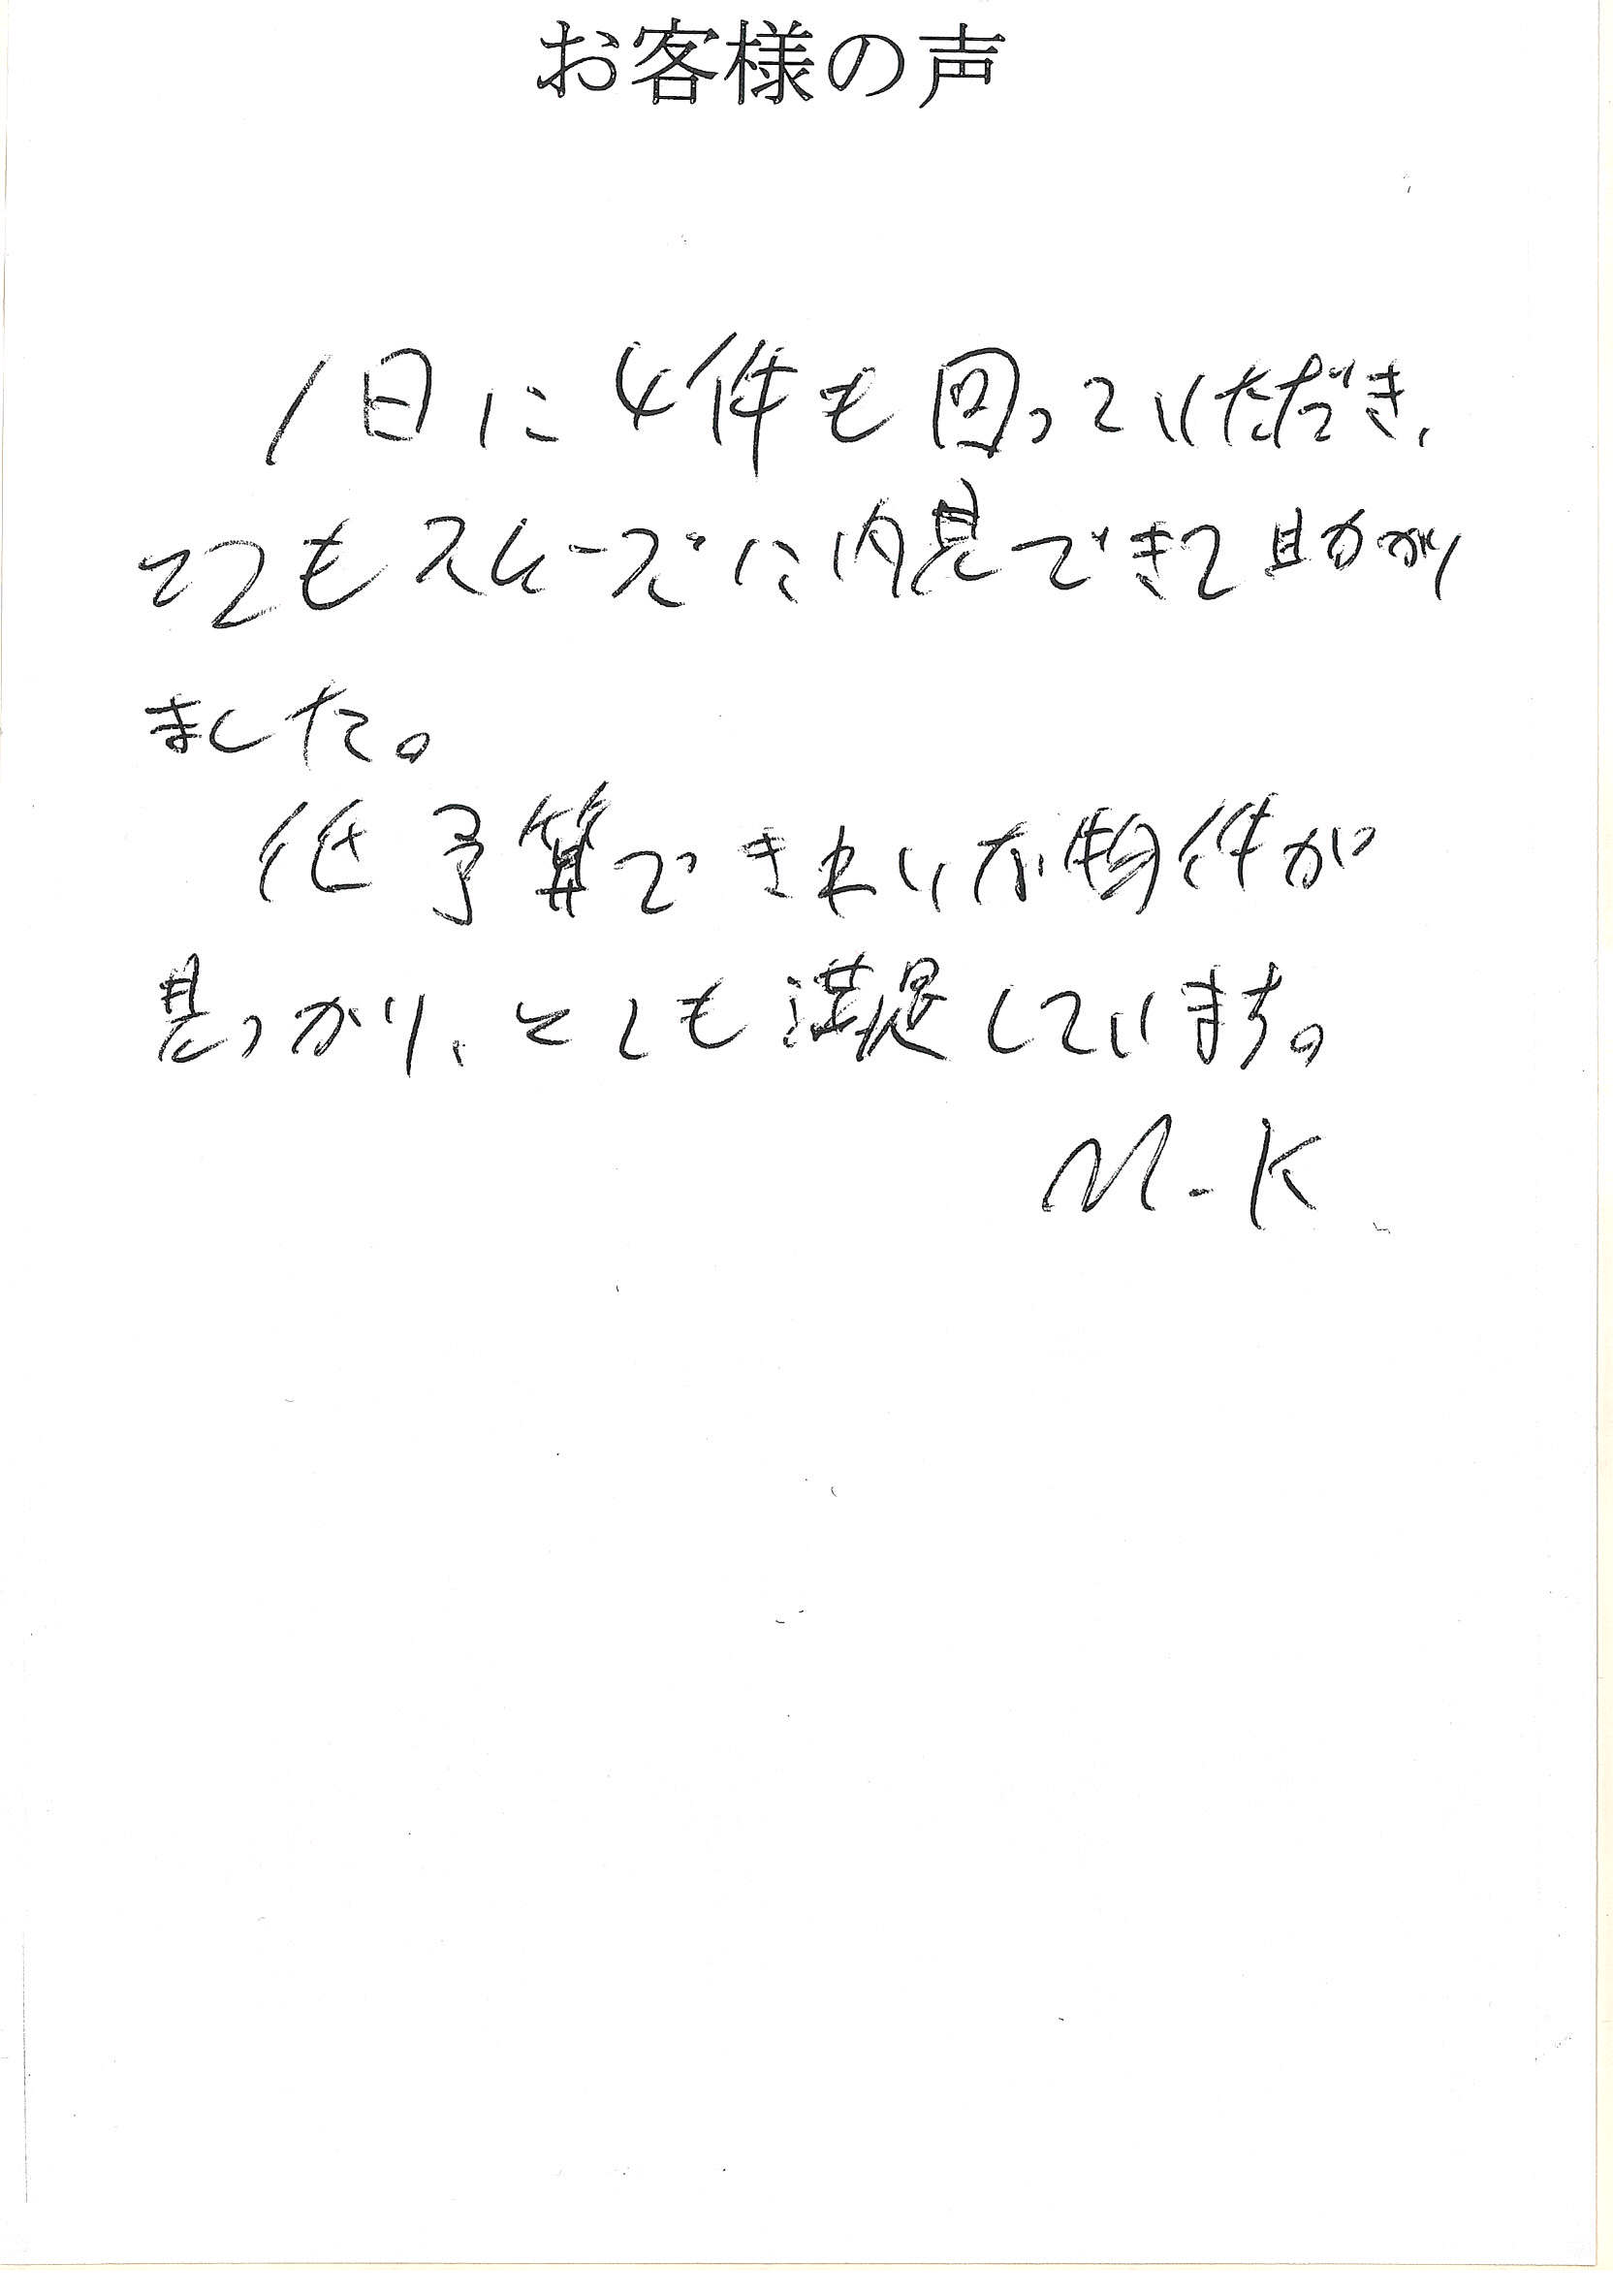 お客様の声
1日に4件も回っていただき、
とてもスムーズに内見できて助かり
ました。
低予算できれいな物件が
見つかり、とても満足しています。
M-K